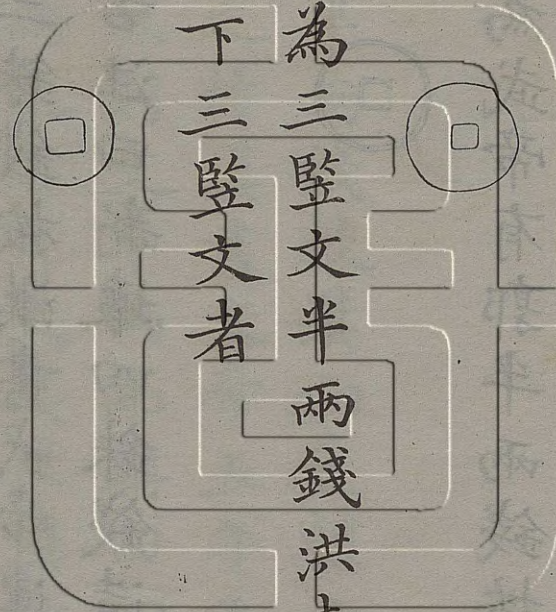 為三竪文半兩錢洪
下三竪文者